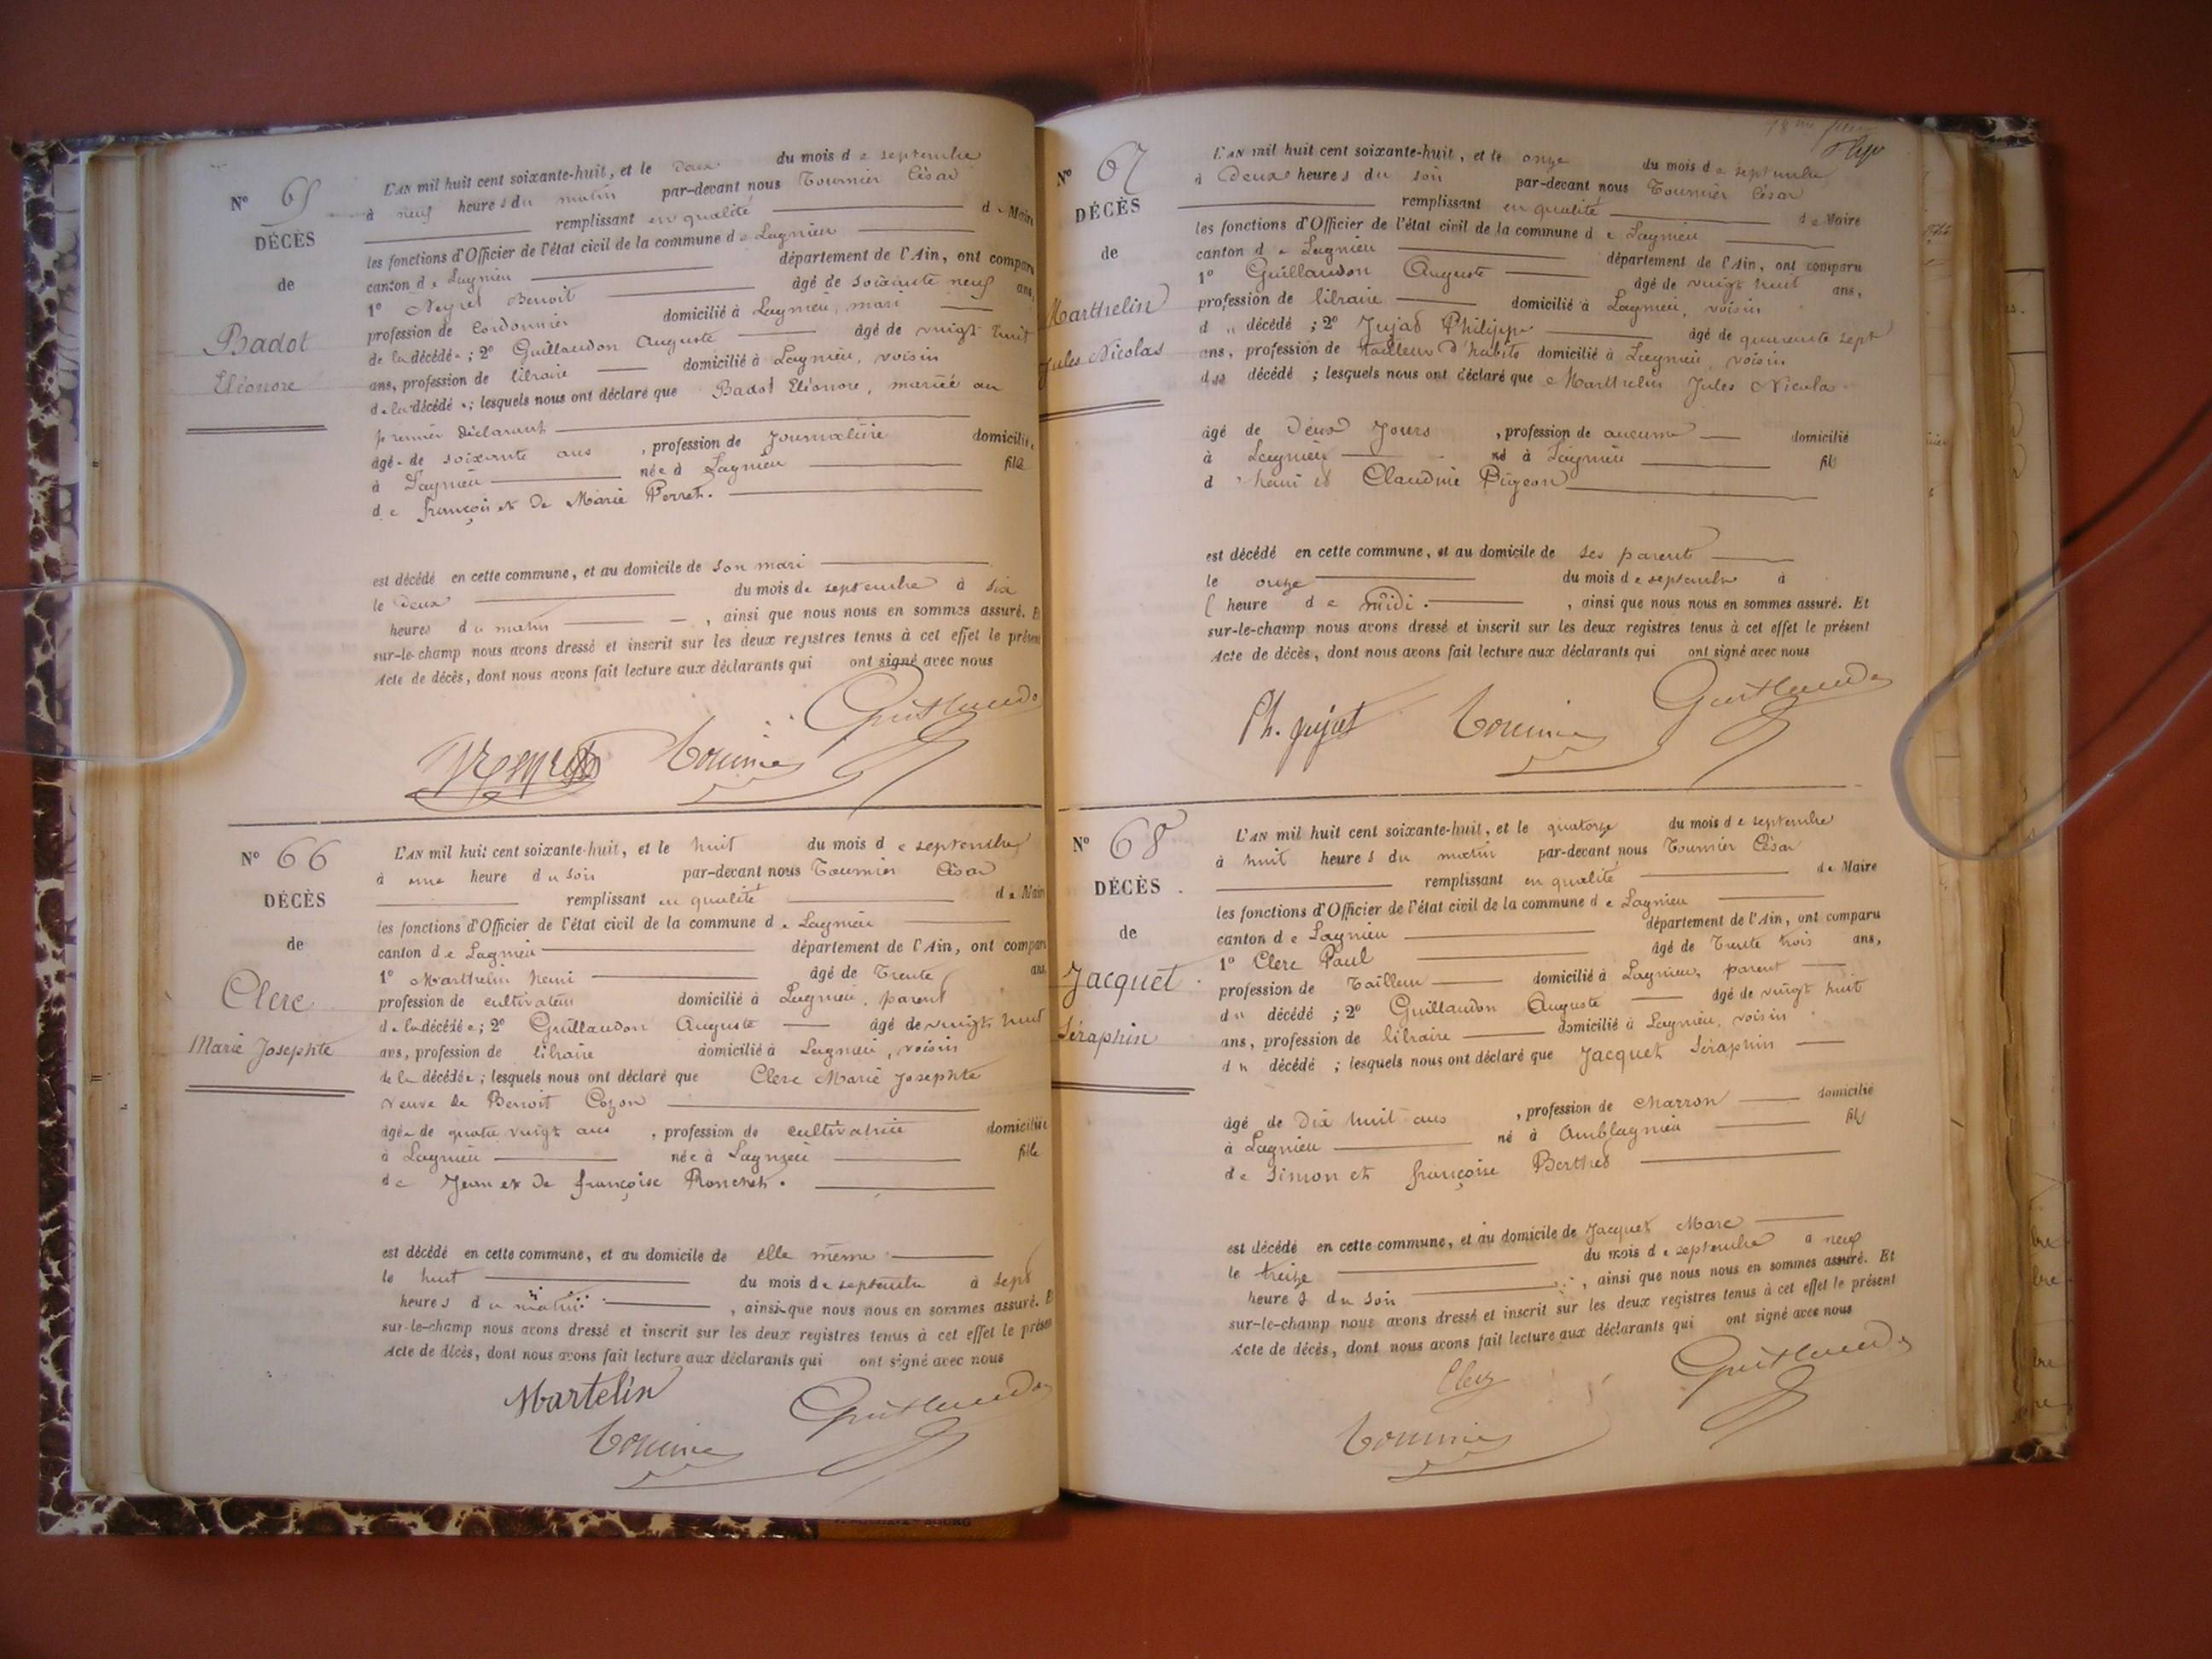 N° 65
DÉCÈS
de
Badot
Eléonore
L'AN mil huit cent soixante-huit, et le deux du mois de septembre
à neuf heures du matin par-devant nous Tournier César
remplissant en qualité de Maire
les fonctions d'Officier de l'état civil de la commune de Lagnieu
canton de Lagnieu département de l'Ain, ont comparu
1° Neyret Benoit âgé de soixante neuf ans,
profession de Cordonnier domicilié à Lagnieu, mari
de la décédée ; 2° Guillaudon Auguste âgé de vuigt huit
ans, profession de libraire domicilié à Lagnieu, voisin
de la décédée ; lesquels nous ont déclaré que Badot Eléonore, mariée au
premier déclarant
âgée de soixante ans , profession de Journalière domiciliée
à Lagnieu née à Lagnieu fille
de françois et de Marie Perret.
est décédé en cette commune, et au domicile de son mari
le deux du mois de septembre à six
heures du matin , ainsi que nous nous en sommes assuré. Et
sur-le-champ nous avons dressé et inscrit sur les deux registres tenus à cet effet le présent
Acte de décès, dont nous avons fait lecture aux déclarants qui ont signé avec nous
Guillaudon
Neyret Tournier
N° 66
DÉCÈS
de
Clerc
Marie Josephte
L'AN mil huit cent soixante-huit, et le huit du mois de septembre
à une heure du soir par-devant nous Tournier César
remplissant en qualité de Maire
les fonctions d'Officier de l'état civil de la commune de Lagnieu
canton de Lagnieu département de l'Ain, ont comparu
1° Marthelin henri âgé de Trente ans
profession de cultivateur domicilié à Lagnieu, parent
de la décédée ; 2° Guillaudon Auguste âgé de vuigt huit
ans, profession de libraire domicilié à Lagnieu, voisin
de la décédée ; lesquels nous ont déclaré que Clerc Marie Josephte
veuve de Benoit Cozon
âgée de quatre vuigt ans , profession de cultivatrice domiciliée
à Lagnieu née à Lagnieu fille
de Jean et de françoise Ronchet.
est décédé en cette commune, et au domicile de elle même
le huit du mois de septembre à sept
heures du matin , ainsi que nous nous en sommes assuré. Et
sur-le-champ nous avons dressé et inscrit sur les deux registres tenus à cet effet le présent
Acte de décès, dont nous avons fait lecture aux déclarants qui ont signé avec nous
Martelin Guillaudon
Tournier
N° 67
DÉCÈS
de
Marthelin
Jules Nicolas
L'AN mil huit cent soixante-huit, et le onze du mois de septembre
à Deux heures du soir par-devant nous Tournier César
remplissant en qualité de Maire
les fonctions d'Officier de l'état civil de la commune de Lagnieu
canton de Lagnieu département de l'Ain, ont comparu
1° Guillaudon Auguste âgé de vuigt huit ans,
profession de libraire domicilié à Lagnieu, voisin
du décédé ; 2° Jujat Philippe âgé de quarente sept
ans, profession de tailleur d'habits domicilié à Lagnieu, voisin
du décédé ; lesquels nous ont déclaré que Marthelin Jules Nicolas
âgé de deux Jours , profession de aucune domicilié
à Lagnieu né à Lagnieu fils
d'henri et Claudine Pigeon
est décédé en cette commune, et au domicile de ses parents
le onze du mois de septembre à
l'heure de midi. , ainsi que nous nous en sommes assuré. Et
sur-le-champ nous avons dressé et inscrit sur les deux registres tenus à cet effet le présent
Acte de décès, dont nous avons fait lecture aux déclarants qui ont signé avec nous
Ph. jujat Tournier Guillaudon
N° 68
DÉCÈS
de
Jacquet
Séraphin
L'AN mil huit cent soixante-huit, et le quatorze du mois de septembre
à huit heures du matin par-devant nous Tournier César
remplissant en qualité de Maire
les fonctions d'Officier de l'état civil de la commune de Lagnieu
canton de Lagnieu département de l'Ain, ont comparu
1° Clerc Paul âgé de Trente trois ans,
profession de Tailleur domicilié à Lagnieu, parent
du décédé ; 2° Guillaudon Auguste âgé de vuigt huit
ans, profession de libraire domicilié à Lagnieu, voisin
du décédé ; lesquels nous ont déclaré que Jacquet Séraphin
âgé de Dix huit ans , profession de charron domicilié
à Lagnieu né à Amblagnieu fils
de Simon et françoise Berthet
est décédé en cette commune, et au domicile de Jacquet Marc
le treize du mois de septembre à neuf
heures du soir , ainsi que nous nous en sommes assuré. Et
sur-le-champ nous avons dressé et inscrit sur les deux registres tenus à cet effet le présent
Acte de décès, dont nous avons fait lecture aux déclarants qui ont signé avec nous
Clerc Guillaudon
Tournier